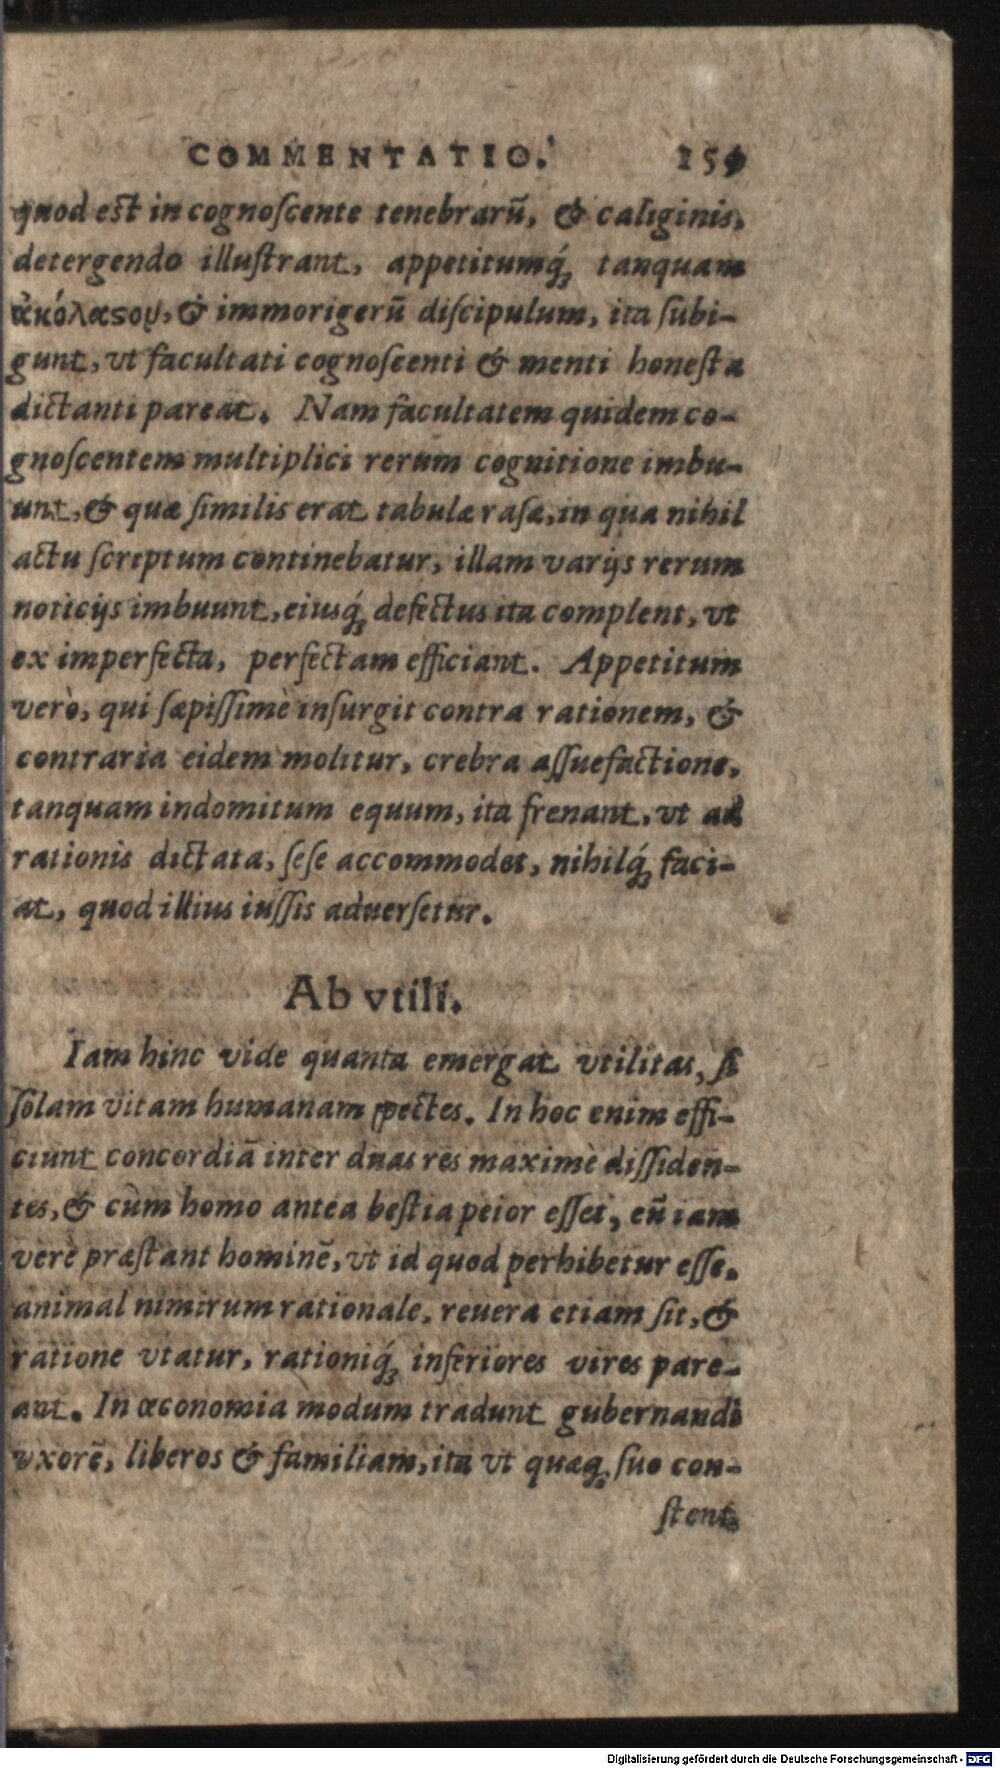 COMMENTATIO. 159
quod est in cognoſcente tenebrarū, & caliginis,
detergendo illuſtrant, appetitumq́; tanquam
ἀκόλαςον, & immorigerū diſcipulum, ita ſubi-
gunt, vt facultati cognoſcenti & menti honeſta
dictanti pareat. Nam facultatem quidem co-
gnoſcentem multiplici rerum cognitione imbu-
unt, & quæ ſimilis erat tabulæ raſæ, in qua nihil
actu ſcriptum continebatur, illam varijs rerum
noticijs imbuunt, eiusq́; defectus ita complent, vt
ex imperfecta, perfectam efficiant. Appetitum
verò, qui ſæpiſſimè inſurgit contra rationem, &
contraria eidem molitur, crebra aſſuefactione,
tanquam indomitum equum, ita frenant, vt ad
rationis dictata, ſeſe accommodet, nihilq́; faci-
at, quod illius iuſſis aduerſetur.
Ab vtili.
Iam hinc vide quanta emergat vtilitas, ſi
ſolam vitam humanam ſpectes. In hoc enim effi-
ciunt concordiā inter duas res maximè diſſiden-
tes, & cùm homo antea beſtia peior eſſet, eū iam
verè præſtant hominē, vt id quod perhibetur eſſe,
animal nimirum rationale, reuera etiam ſit, &
ratione vtatur, rationiq́; inferiores vires pare-
ant. In œconomia modum tradunt gubernandi
vxorē, liberos & familiam, ita vt quæq; ſuo con-
ſtent
Digitalisierung gefördert durch die Deutsche Forschungsgemeinschaft - DFG